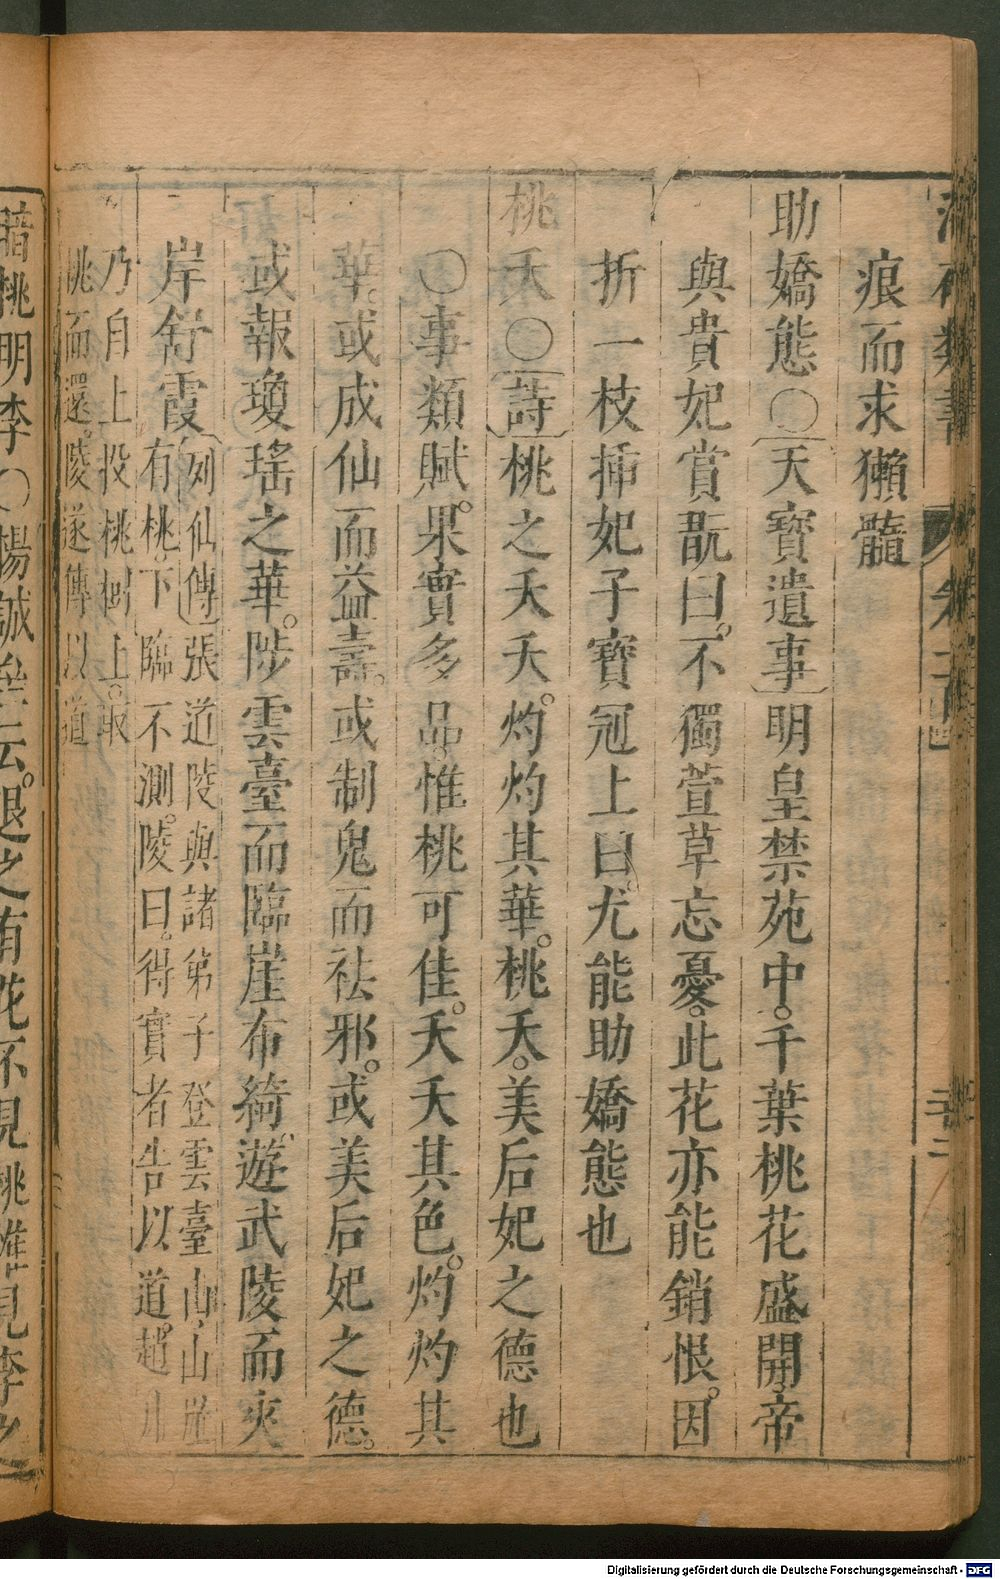 痕而求獺髓
助嬌態〇天寶遺事明皇禁苑中。千葉桃花盛開。帝
與貴妃賞翫曰。不獨萱草忘憂。此花亦能銷恨。因
折一枝揷妃子寶冠上曰。尤能助嬌態也
桃夭〇詩桃之夭夭。灼灼其華。桃夭。美后妃之德也
〇事類賦。果實多品。惟桃可佳。夭夭其色。灼灼其
華。或成仙而益壽。或制鬼而祛邪。或美后妃之德。
或報瓊瑤之華。陟雲臺而臨崖布綺。遊武陵而夾
岸舒霞列仙傳張道陵與諸弟子登雲臺山。山
有桃。下臨不測。陵曰。得實者告以道。趙昇
乃自上投桃樹上。取
桃而還。陵遂傳以道
桃明李〇楊誠齋云。退之有花不見桃惟見李之
Digitalisierung gefördert durch die Deutsche Forschungsgemeinschaft - DFG